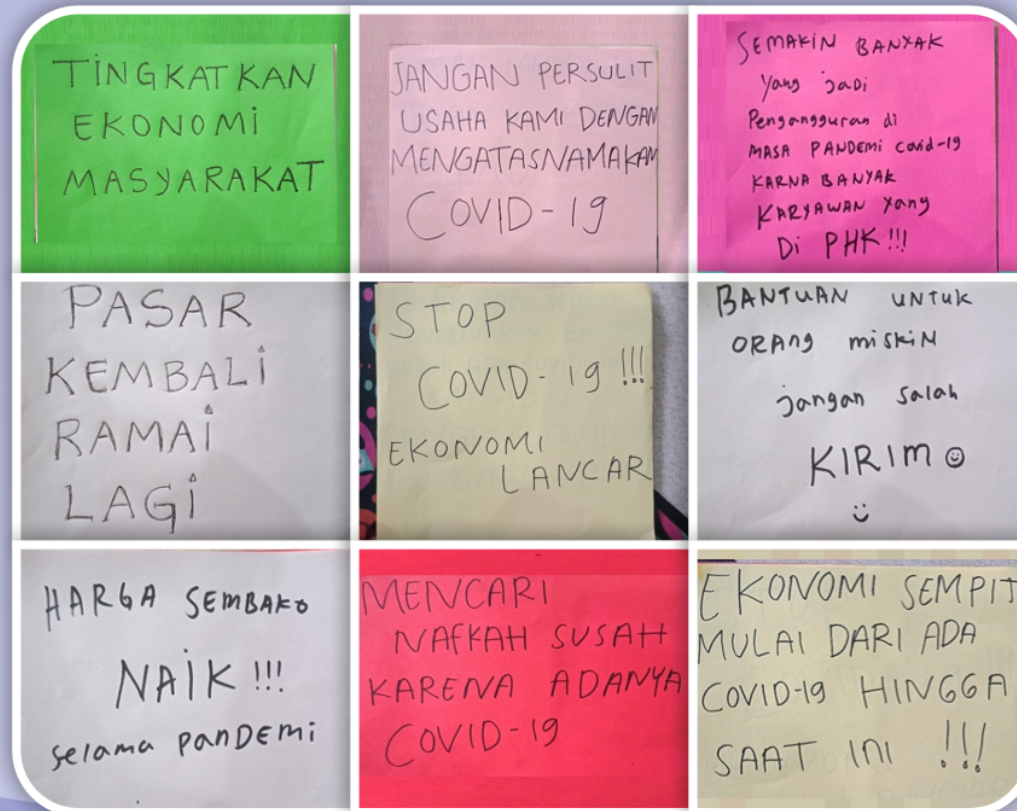 TINGKATKAN
EKONOMI
MASYARAKAT
JANGAN PERSULIT
USAHA KAMI DENGAN
MENGATASNAMAKAN
COVID-19
SEMAKIN BANYAK
yang jadi
Pengangguran di
MASA PANDEMi covid-19
KARNA BANYAK
KARYAWAN yang
Di PHK!!!
PASAR
KEMBALI
RAMAI
LAGI
STOP
COVID-19 !!!
EKONOMI
LANCAR
BANTUAN UNTUK
ORANg misKiN
jangan salah
KIRIM ☺
HARGA SEMBAKO
NAIK !!!
selama panDEmi
MENCARI
NAFKAH SUSAH
KARENA ADANYA
COVID-19
EKONOMI SEMPIT
MULAI DARI ADA
COVID-19 HINGGA
SAAT INI !!!